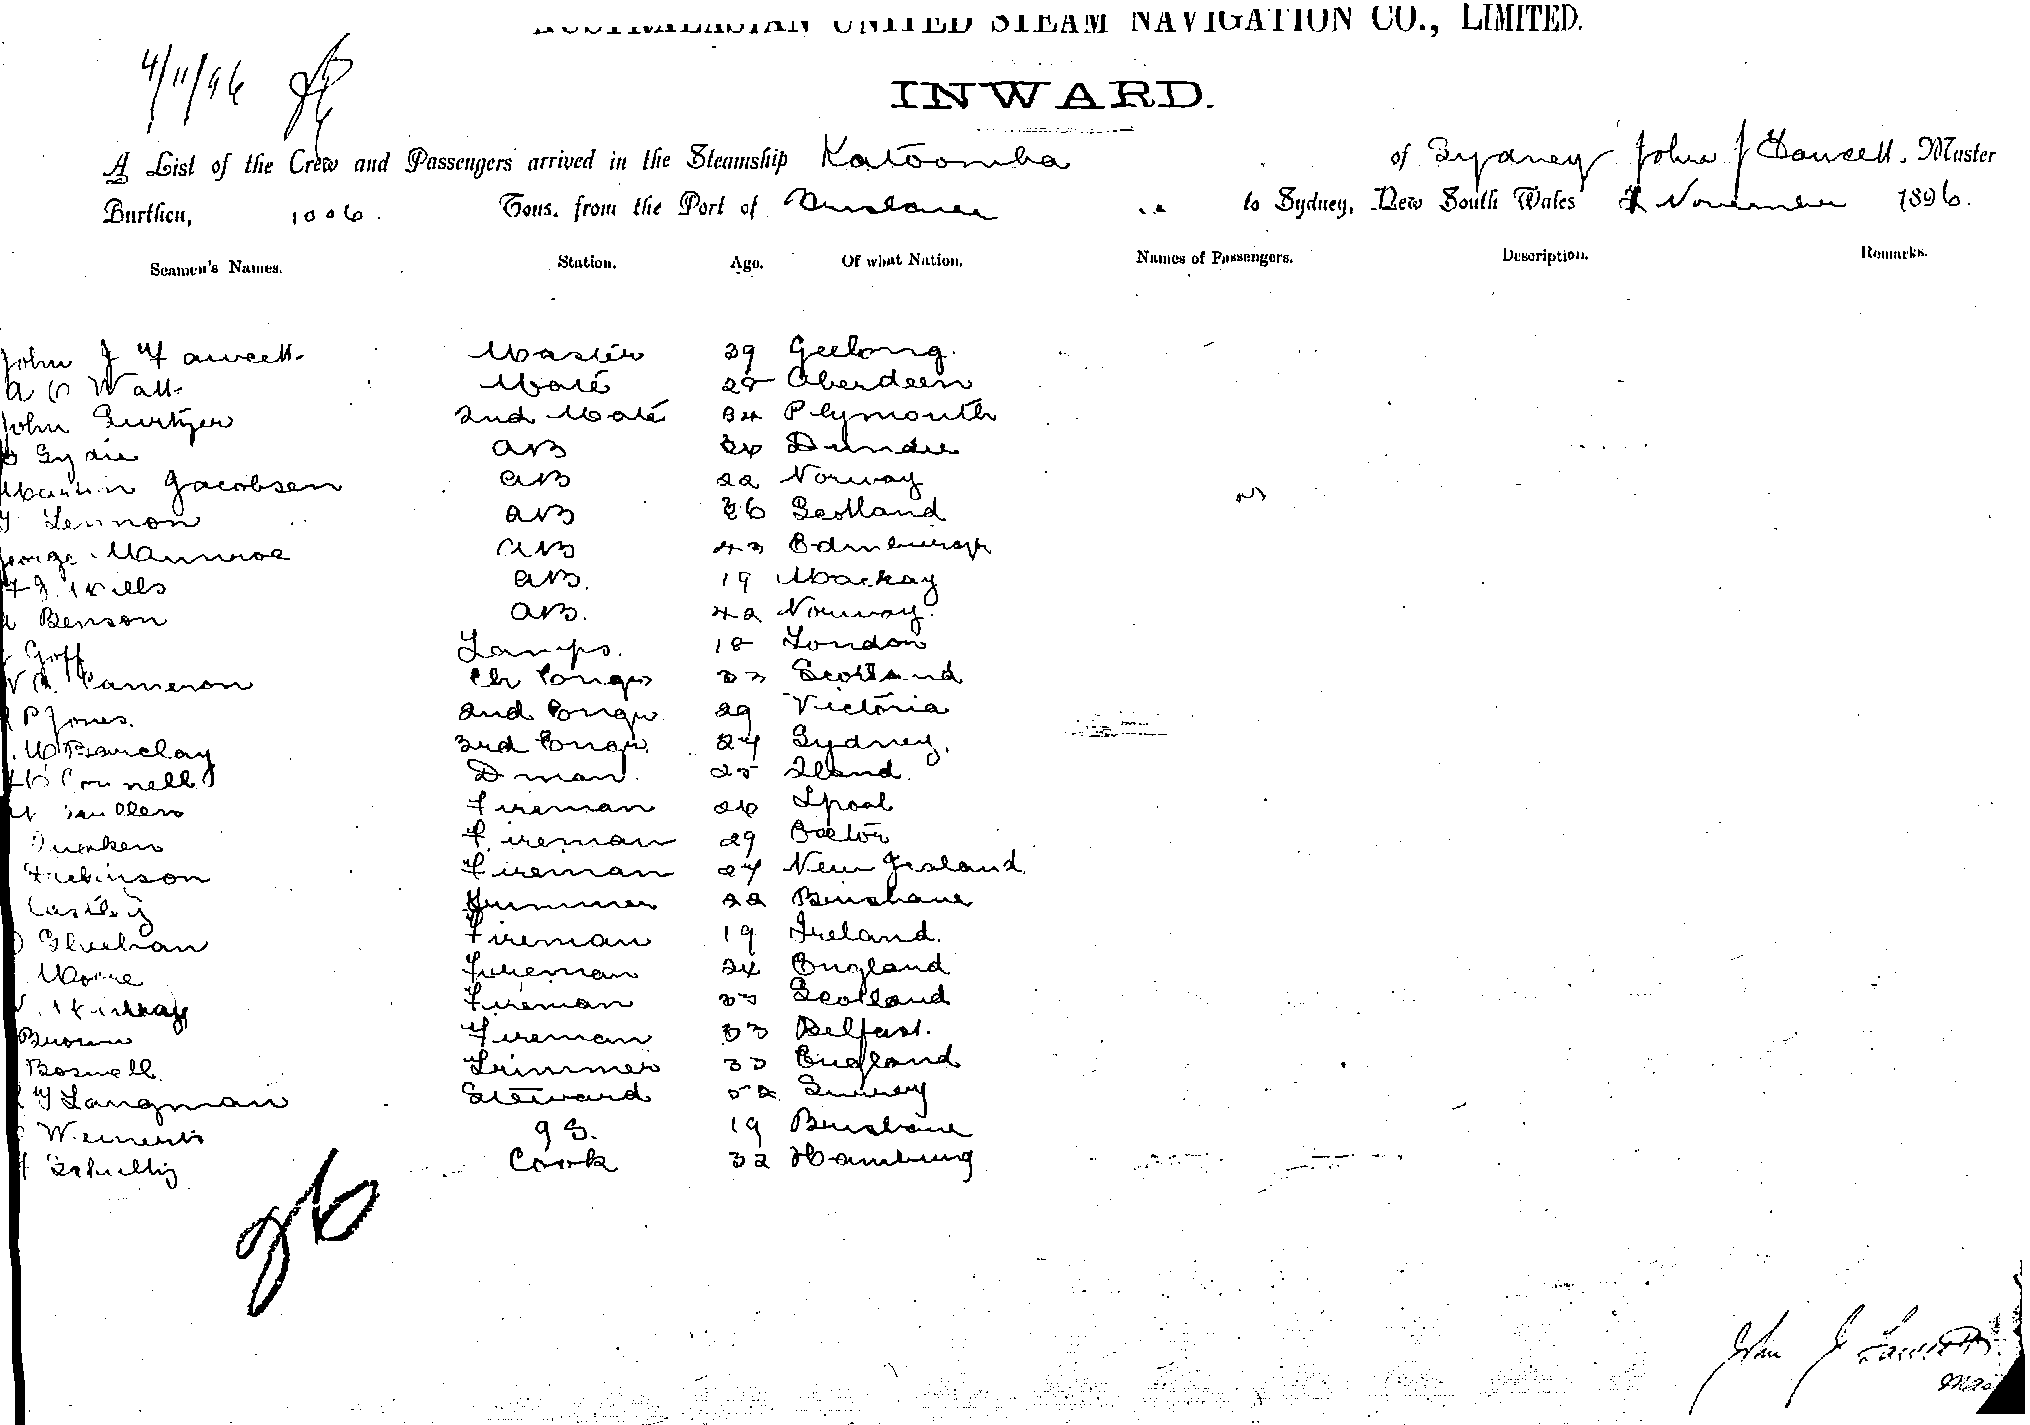 AUSTRALASIAN UNITED STEAM NAVIGATION CO., LIMITED.
4/11/96
INWARD.
A List of the Crew and Passengers arrived in the Steamship Katoomba of Sydney John J Fawcett. Master
Burthen, 1006. Tons, from the Port of Brisbane to Sydney, New South Wales 4 November 1896.
Seamen's Names. Station. Age. Of what Nation. Names of Passengers. Description. Remarks.
John J Fawcett Master 39 Geelong.
Watt Mate 28 Aberdeen
John 2nd Mate 34 Plymouth
AB Dundee
Martin Jacobsen AB 22 Norway
Lennon AB 26 Scotland
George Munroe AB 43 Edinburgh
Wills AB. 19 Mackay
Benson AB. 42 Norway.
Goff Lamps. 18 London
Cameron Ch Engr 33 Scotland
P Jones. 2nd Engr 29 Victoria
Barclay 3rd Engr. 27 Sydney.
Connell D man. 25
Fireman 26 Lpool
Fireman 29
Fireman 27 New Zealand
Trimmer 22 Brisbane
Fireman 19 Ireland.
Moore Fireman 24 England
Murray Fireman 33 Scotland
Brown Fireman 33 Belfast.
Boswell Trimmer 33 England
Langman Steward 52 Surrey
G S. 19 Brisbane
Cook 32 Hamburg
26
John J Fawcett